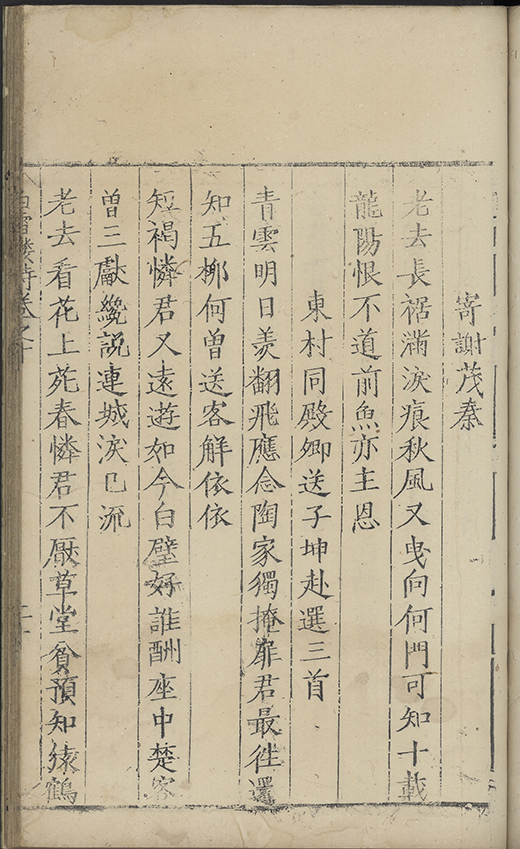 寄謝茂秦
老去長裾滿淚痕秋風又曳向何門可知十載
龍陽恨不道前魚亦主恩
東村同殿卿送子坤赴選三首
青雲明日羨翻飛應念陶家獨掩扉君最往還
知五柳何曾送客解依依
短褐憐君又遠遊如今白璧好誰酬座中楚客
曾三獻纔説連城淚已流
老去看花上苑春憐君不厭草堂貧預知猿鶴
白雪樓詩卷之十